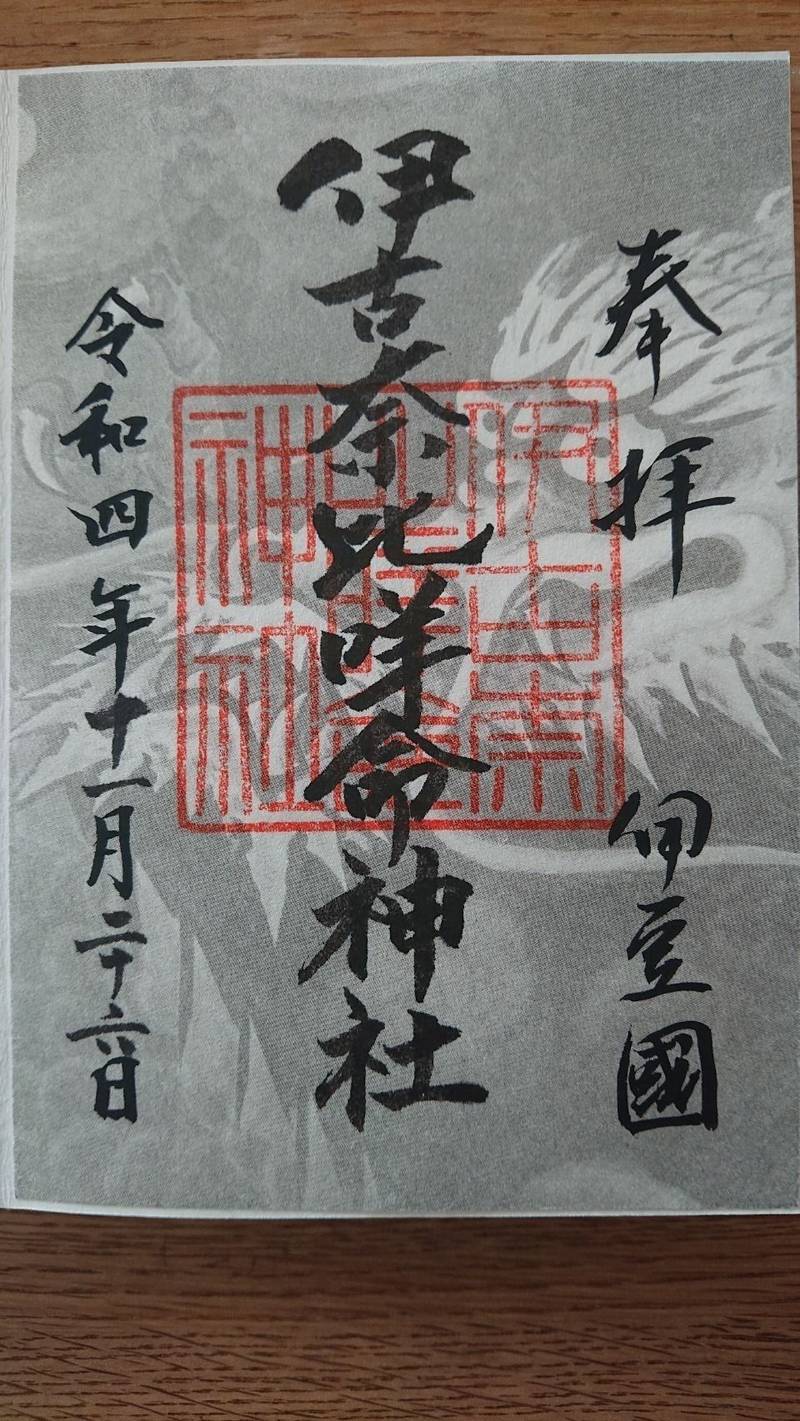 奉拝 伊豆國
伊古奈比咩命神社
伊古奈比咩命神社
令和四年十一月二十六日